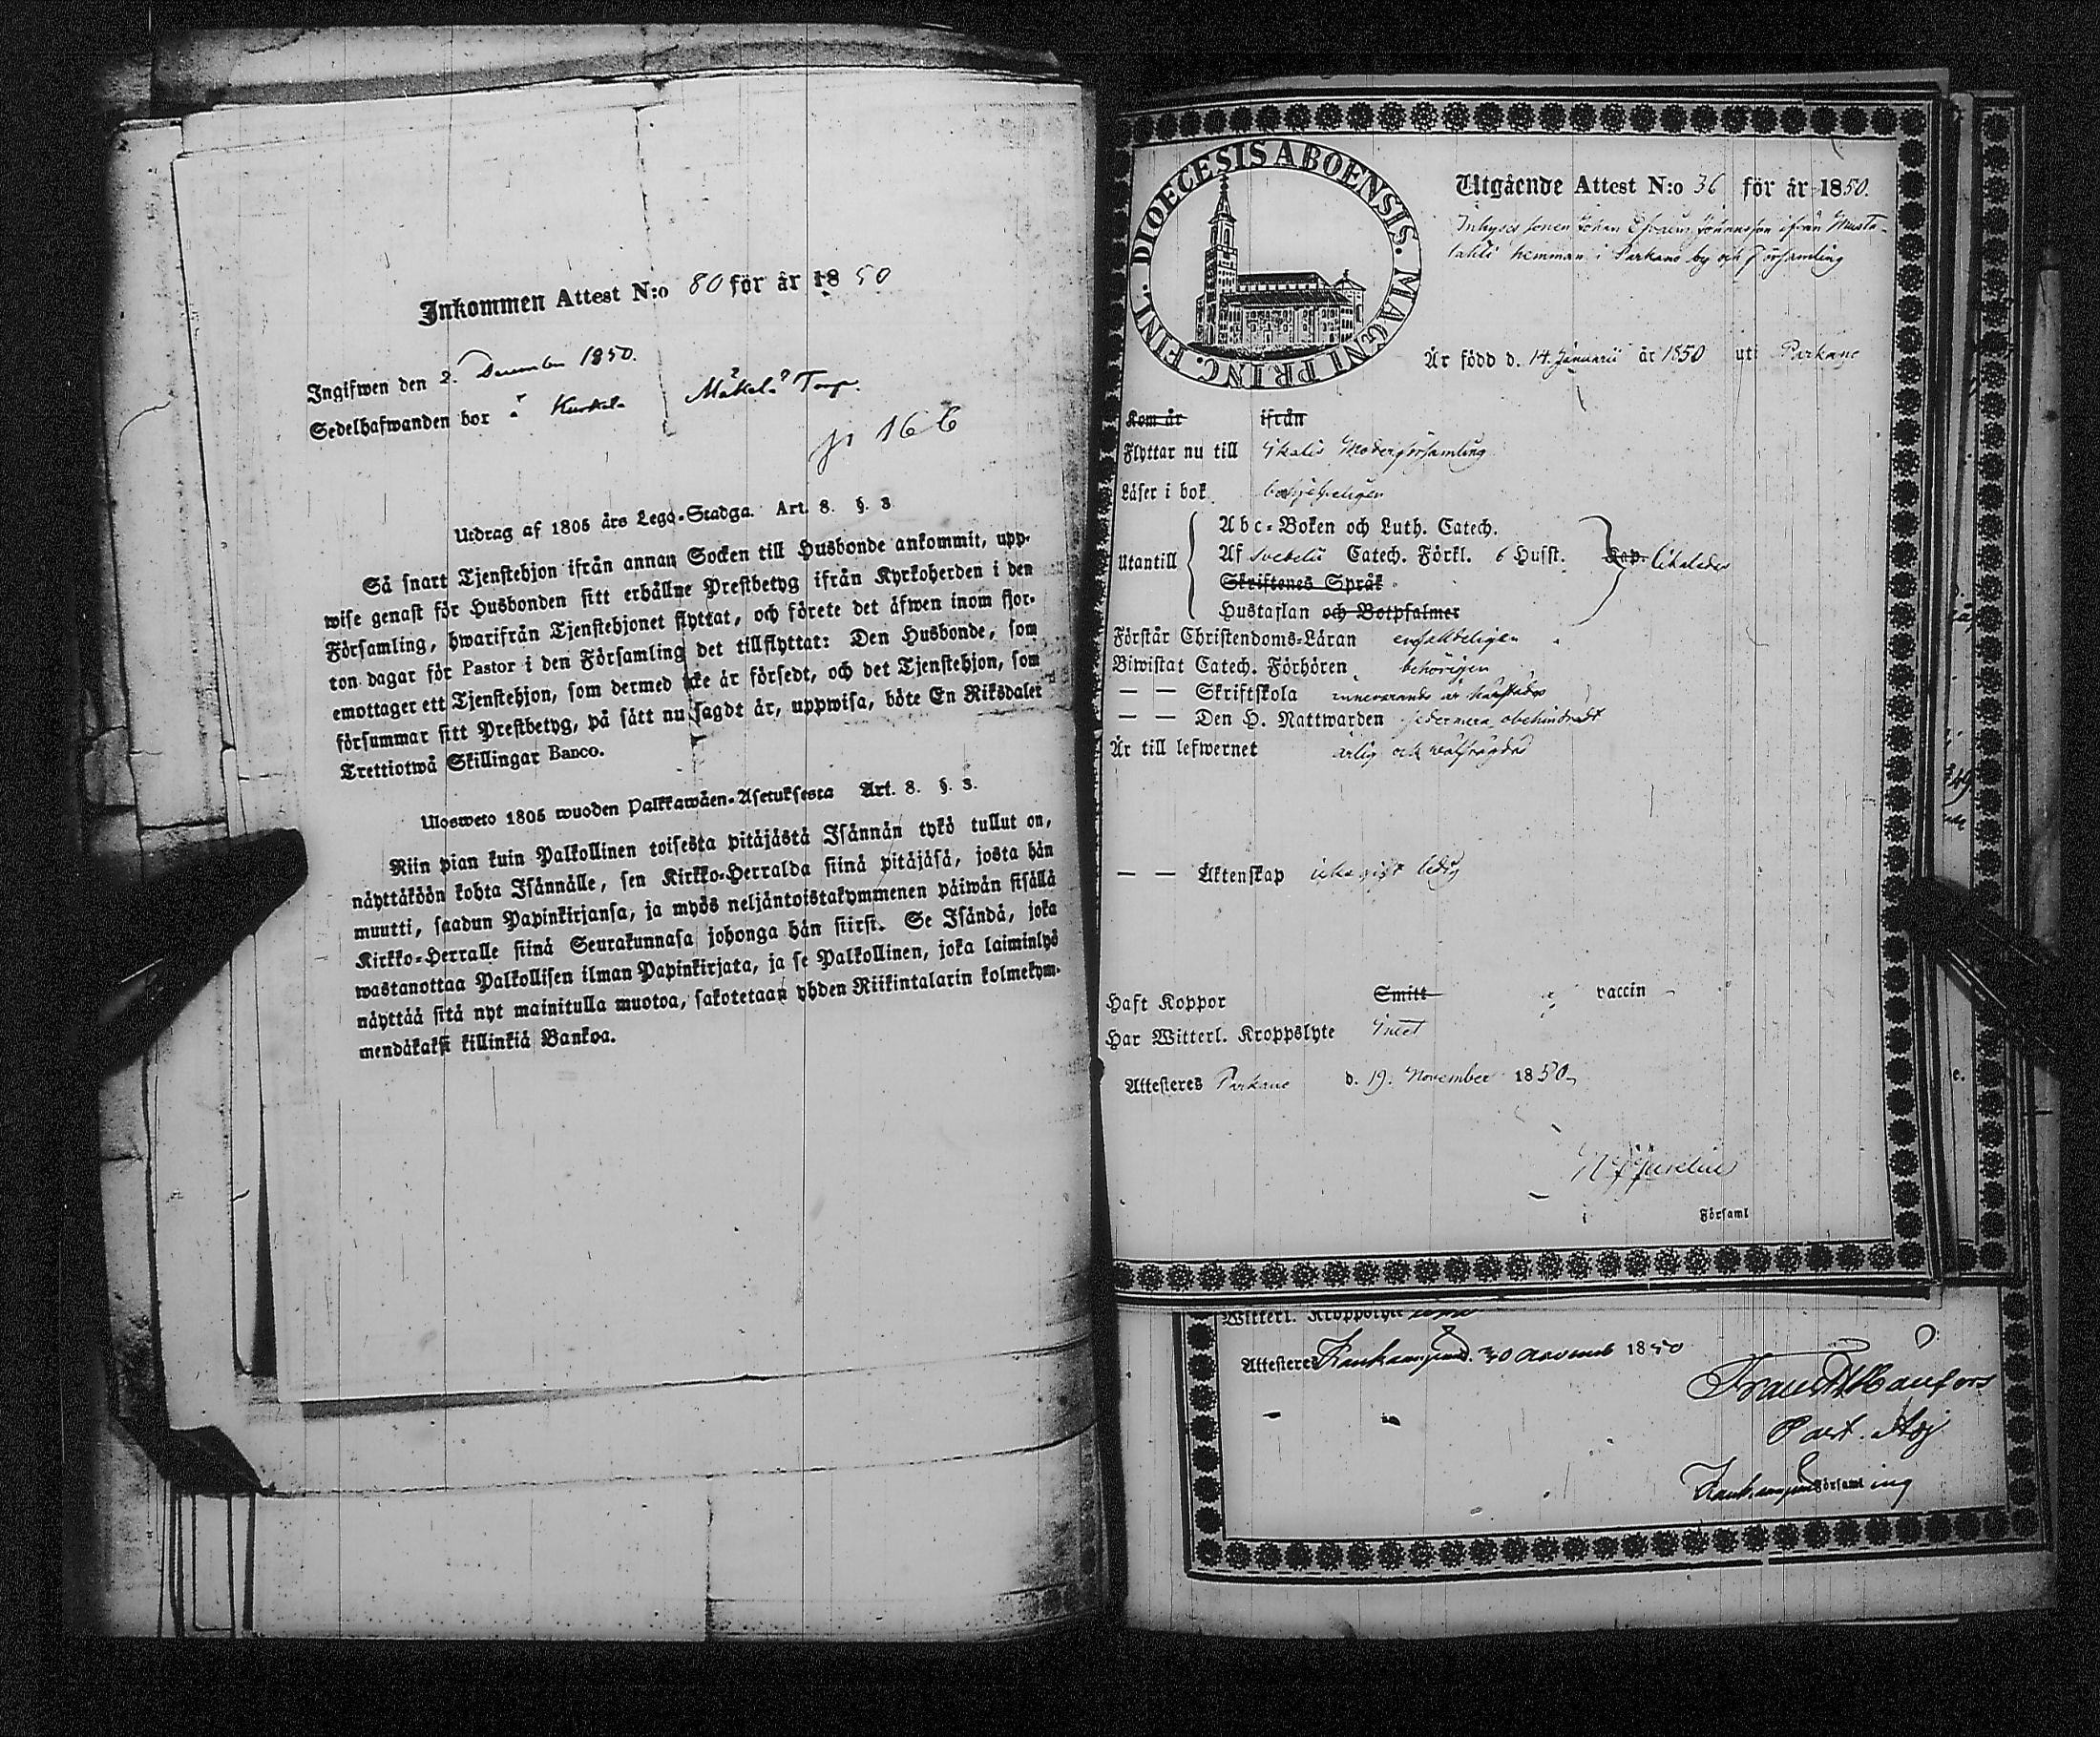 Inkommen Attest N:o 80 för år 1850
Ingifwen den 2. December 1850.
Sedelhafwanden bor å Kurkela Mäkelä Torp.
p 166
Utdrag af 1805 års Lego-Stadga. Art. 8. §. 3
Så snart Tjenstehjon ifrån annan Socken till Husbonde ankommit, upp-
wise genast för Husbonden sitt erhållne Prestbetyg ifrån Kyrkoherden i den
Församling, hwarifrån Tjenstehjonet flyttat, och förete det äfwen inom fjor-
ton dagar för Pastor i den Församling det tillflyttat: Den Husbonde, som
emottager ett Tjenstehjon, som dermed icke är försedt, och det Tjenstehjon, som
försummar sitt Prestbetyg, på sätt nu sagdt är, uppwisa, böte En Riksdaler
Trettiotwå Skillingar Banco.
Ulosweto 1805 wuoden Palkkawäen-Asetuksesta Art. 8. §. 3.
Niin pian kuin Palkollinen toisesta pitäjästä Isännän tykö tullut on,
näyttäköön kohta Isännälle, sen Kirkko-Herralda siinä pitäjäsä, josta hän
muutti, saadun Papinkirjansa, ja myös neljäntoistakymmenen päiwän sisällä
Kirkko-Herralle siinä Seurakunnasa johonga hän siirsi. Se Isändä, joka
wastanottaa Palkollisen ilman Papinkirjata, ja se Palkollinen, joka laiminlyö
näyttää sitä nyt mainitulla muotoa, sakotetaan yhden Riikintalarin kolmekym-
mendäkaksi killinkiä Bankoa.
DIOECESIS ABOENSIS. MAGNI PRINC. FINL.
Utgående Attest N:o 36 för år 1850.
Inhyses sonen Johan Efraim Johansson ifrån Musta-
lahti hemman i Parkano by och Församling
Är född d. 14. Januarii år 1850 uti Parkano
Kom år ifrån
Flyttar nu till Ikalis Moderförsamling
Läser i bok
Abc-Boken och Luth. Catech.
Utantill Af Svebelii Catech. Förkl. 6 Husst. Kap. likaledes
Skriftenes Språk
Hustaflan och Botpsalmer
Förstår Christendoms-Läran enfaldeligen
Biwistat Catech. Förhören behörigen
— — Skriftskola innevarande år
— — Den H. Nattwarden obehindradt
Är till lefwernet ärlig och wälfrägdad
— — Äktenskap ledig
Haft Koppor Smitt vaccin
Har Witterl. Kroppslyte Intet
Attesteres Parkano d. 19. November 1850
Församl
Witterl. Kroppslyte
Attesteres Kankaanpää d. 30 Novemb 1850
Past. Adj
Kankaanpää Församling